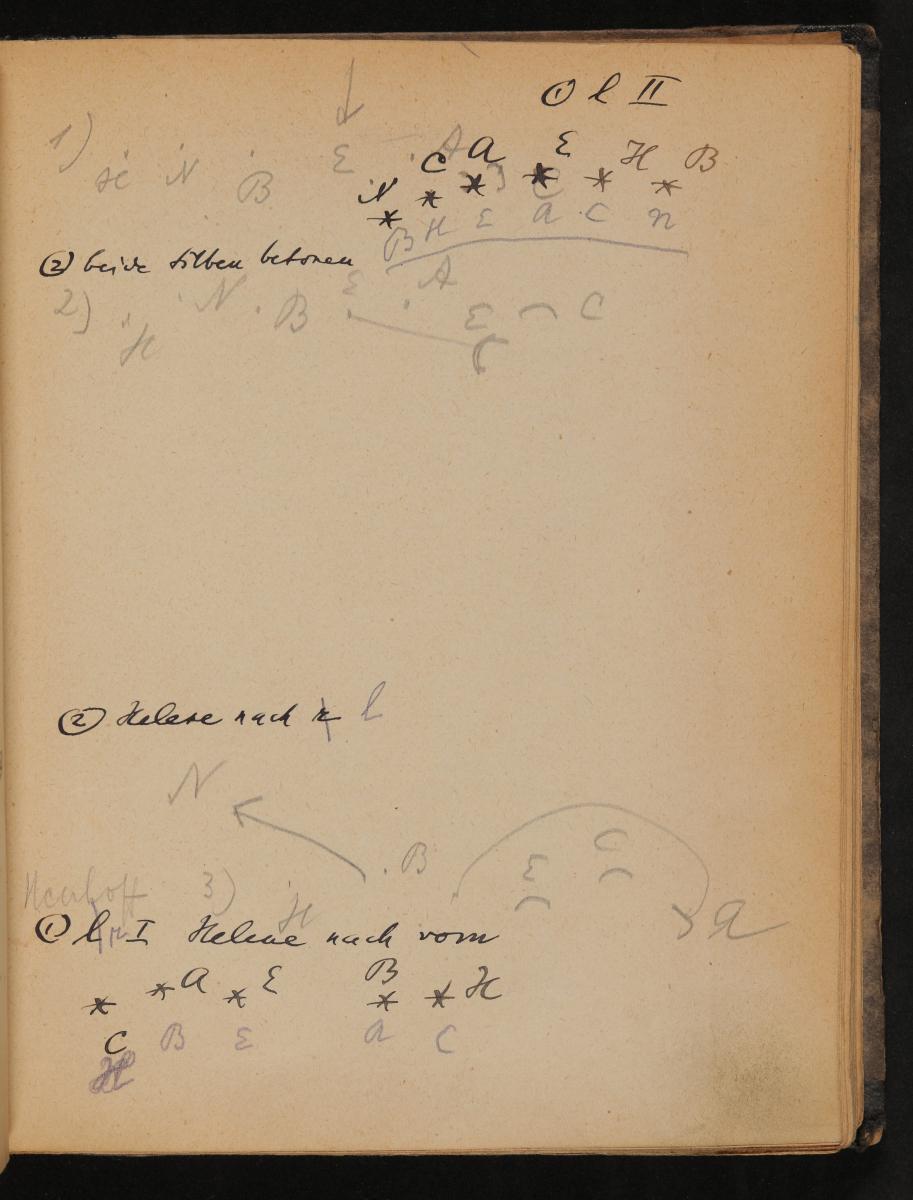 ① l II
1) H N B E A
C A E H B
N * * * * * *
B H E A C N
② beide Silben betonen
2) H N B E A E C
② Helene nach r l
N
B E C
3) H A
① l I Helene nach vorn
* * A * E * B * H
C B E A C
H